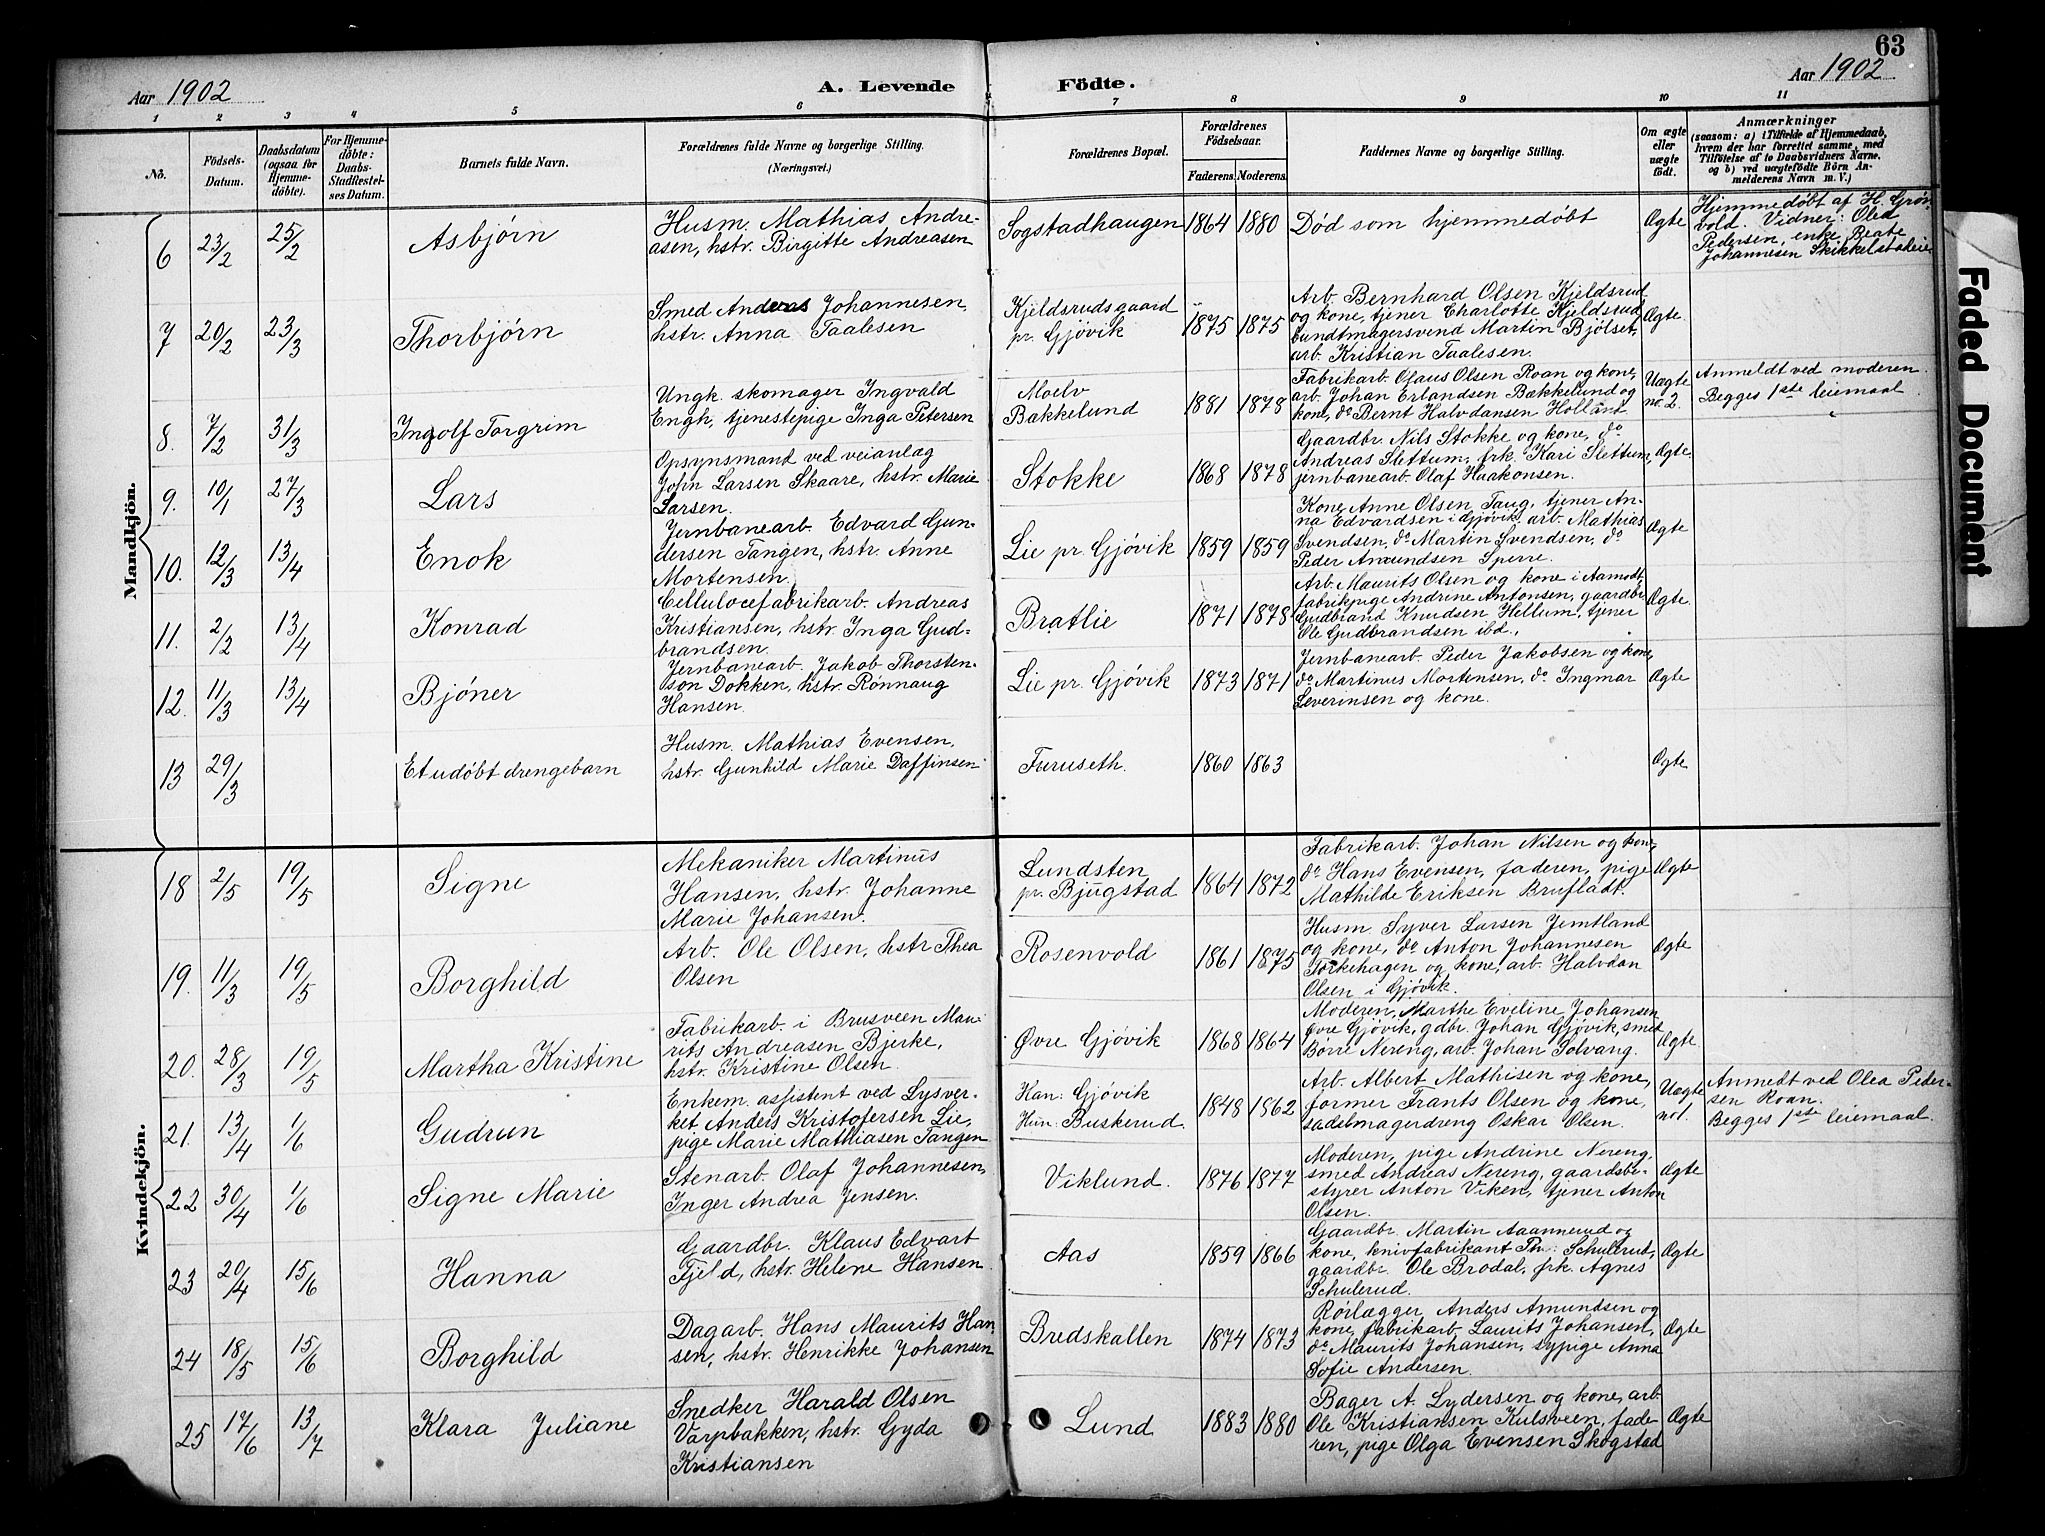 63
Aar 1902
A. Levende Födte.
Aar 1902
1 2 3 4 5 6 7 8 9 10 11
No.
Födsels-Datum.
Daabsdatum (ogsaa for Hjemmedöbte).
For Hjemmedöbte: Daabs-Stadfestelses Datum.
Barnets fulde Navn.
Forældrenes fulde Navne og borgerlige Stilling.
(Næringsvei.)
Forældrenes Bopæl.
Forældrenes Födselsaar.
Faderens. Moderens.
Faddernes Navne og borgerlige Stilling.
Om ægte eller uægte födt.
Anmærkninger
(saasom: a) i Tilfælde af Hjemmedaab,
hvem der har forrettet samme, med
Tilföielse af to Daabsvidners Navne,
og b) ved uægtefödte Börn An-
melderens Navn m. V.)
Mandkjön.
6 23/2 25/2 Asbjørn
Husm. Mathias Andre-
asen, hstr. Birgitte Andreasen
Sogstadhaugen 1864 1880 Død som hjemmedøbt Ægte
Hjemmedøbt af H. Grøn-
vold. Vidner: Oled
Pedersen, enke Beate
Johannesen Skikkelstadeie
7 20/2 23/3 Thorbjørn
Smed Andreas Johannesen,
hstr. Anna Taalesen
Kjeldsrudsgaard
pr. Gjøvik
1875 1875
Arb. Bernhard Olsen Kjeldsrud
og kone, tjener Charlotte Kjeldsrud
bundtmagersvend Martin Bjølset,
arb. Kristian Taalesen.
Ægte
8. 7/2 31/3 Ingolf Torgrim
Ungk. skomager Ingvald
Engh, tjenestepige Inga Petersen
Moelv
Bakkelund
1881 1878
Fabrikarb. Olaus Olsen Roan og kone,
arb. Johan Erlandsen Bækkelund og
kone, do Bernt Halvdansen Holland
Uægte
no. 2.
Anmeldt ved moderen.
Begges 1ste leiemaal
9. 10/1 27/3 Lars
Opsynsmand ved veianlæg
John Larsen Skaare, hstr. Marie
Larsen.
Stokke 1868 1878
Gaardbr. Nils Stokke og kone, do
Andreas Slettum, frk. Kari Slettum,
jernbanearb. Olaf Haakonsen.
Ægte
10. 12/3 13/4 Enok
Jernbanearb. Edvard Gun-
dersen Tangen, hstr. Anne
Mortensen.
Lie pr. Gjøvik 1859 1859
Kone Anne Olsen Taug, tjener An-
na Edvardsen i Gjøvik, arb. Mathias
Svendsen, do Martin Svendsen, do
Peder Amundsen Sperre.
Ægte
11. 2/2 13/4 Konrad
Cellulocefabrikarb. Andreas
Kristiansen, hstr. Inga Gud-
brandsen.
Bratlie 1871 1878
Arb. Maurits Olsen og kone i Aamodt,
fabrikpige Andrine Antonsen, gaardbr.
Gudbrand Knudsen Hellum, tjener
Ole Gudbrandsen ibd.
Ægte
12. 11/3 13/4 Bjóner
Jernbanearb. Jakob Thorsten-
son Dokken, hstr. Rønnaug
Hansen.
Lie pr. Gjøvik 1873 1871
Jernbanearb. Peder Jakobsen og kone,
do Martinus Mortensen, do Ingmar
Severinsen og kone.
Ægte
13 29/3 Et udøbt drengebarn
Husm. Mathias Evensen,
hstr. Gunhild Marie Daffinsen
Furuseth. 1860 1863 Ægte
Kvindekjön.
18 2/5 19/5 Signe
Mekaniker Martinus
Hansen, hstr. Johanne
Marie Johansen.
Lundsten
pr. Bjugstad
1864 1872
Fabrikarb. Johan Nilsen og kone,
do Hans Evensen, faderen, pige
Mathilde Eriksen Brufladt.
Ægte
19. 11/3 19/5 Borghild
Arb. Ole Olsen, hstr Thea
Olsen
Rosenvold 1861 1875
Husm. Syver Larsen Jemtland
og kone, do Anton Johannesen
Torkehagen og kone, arb. Halvdan
Olsen i Gjøvik.
Ægte
20. 28/3 19/5 Martha Kristine
Fabrikarb. i Brusveen Mau-
rits Andreasen Bjerke,
hstr. Kristine Olsen.
Øvre Gjøvik 1868 1864
Moderen, Marthe Eveline Johansen
Øvre Gjøvik, gdbr. Johan Gjøvik, smed
Børre Nereng, arb. Johan Solvang.
Ægte
21. 13/4 1/6 Gudrun
Enkem. assistent ved Lysver-
ket Anders Kristofersen Lie,
pige Marie Mathiasen Tangen
Han: Gjøvik
Hun: Buskerud
1848 1862
Arb. Albert Mathisen og kone,
former Frants Olsen og kone,
sadelmagerdreng Oskar Olsen.
Uægte
no 1.
Anmedt ved Olea Peder-
sen Roan.
Begges 1ste leiemaal
22 30/4 1/6 Signe Marie
Stenarb. Olaf Johannesen,
Inger Andrea Jensen.
Viklund. 1876 1877
Moderen, pige Andrine Nereng,
smed Andreas Nereng, gaardsbe-
styrer Anton Viken, tjener Anton
Olsen.
Ægte
23 20/4 15/6 Hanna
Gaardbr. Klaus Edvart
Fjeld, hstr. Helene Hansen.
Aas 1859 1866
Gaardbr. Martin Aannerud og
kone, knivfabrikant Th: Schulerud,
gaardbr. Ole Brodal, frk. Agnes
Schulerud.
Ægte
24 18/5 15/6 Borghild
Dagarb. Hans Maurits Han-
sen, hstr. Henrikke Johansen
Bredskallen 1874 1873
Rørlægger Anders Amundsen og
kone, fabrikarb. Laurits Johansen,
do Maurits Johansen, sypige Anna
Sofie Andersen.
Ægte
25 17/6 13/7 Klara Juliane
Snedker Harald Olsen
Varpbakken, hstr. Gyda
Kristiansen
Lund 1883 1880
Bager A. Lydersen og kone, arb.
Ole Kristiansen Kulsveen, fade-
ren, pige Olga Evensen Skogstad
Ægte
Faded Document